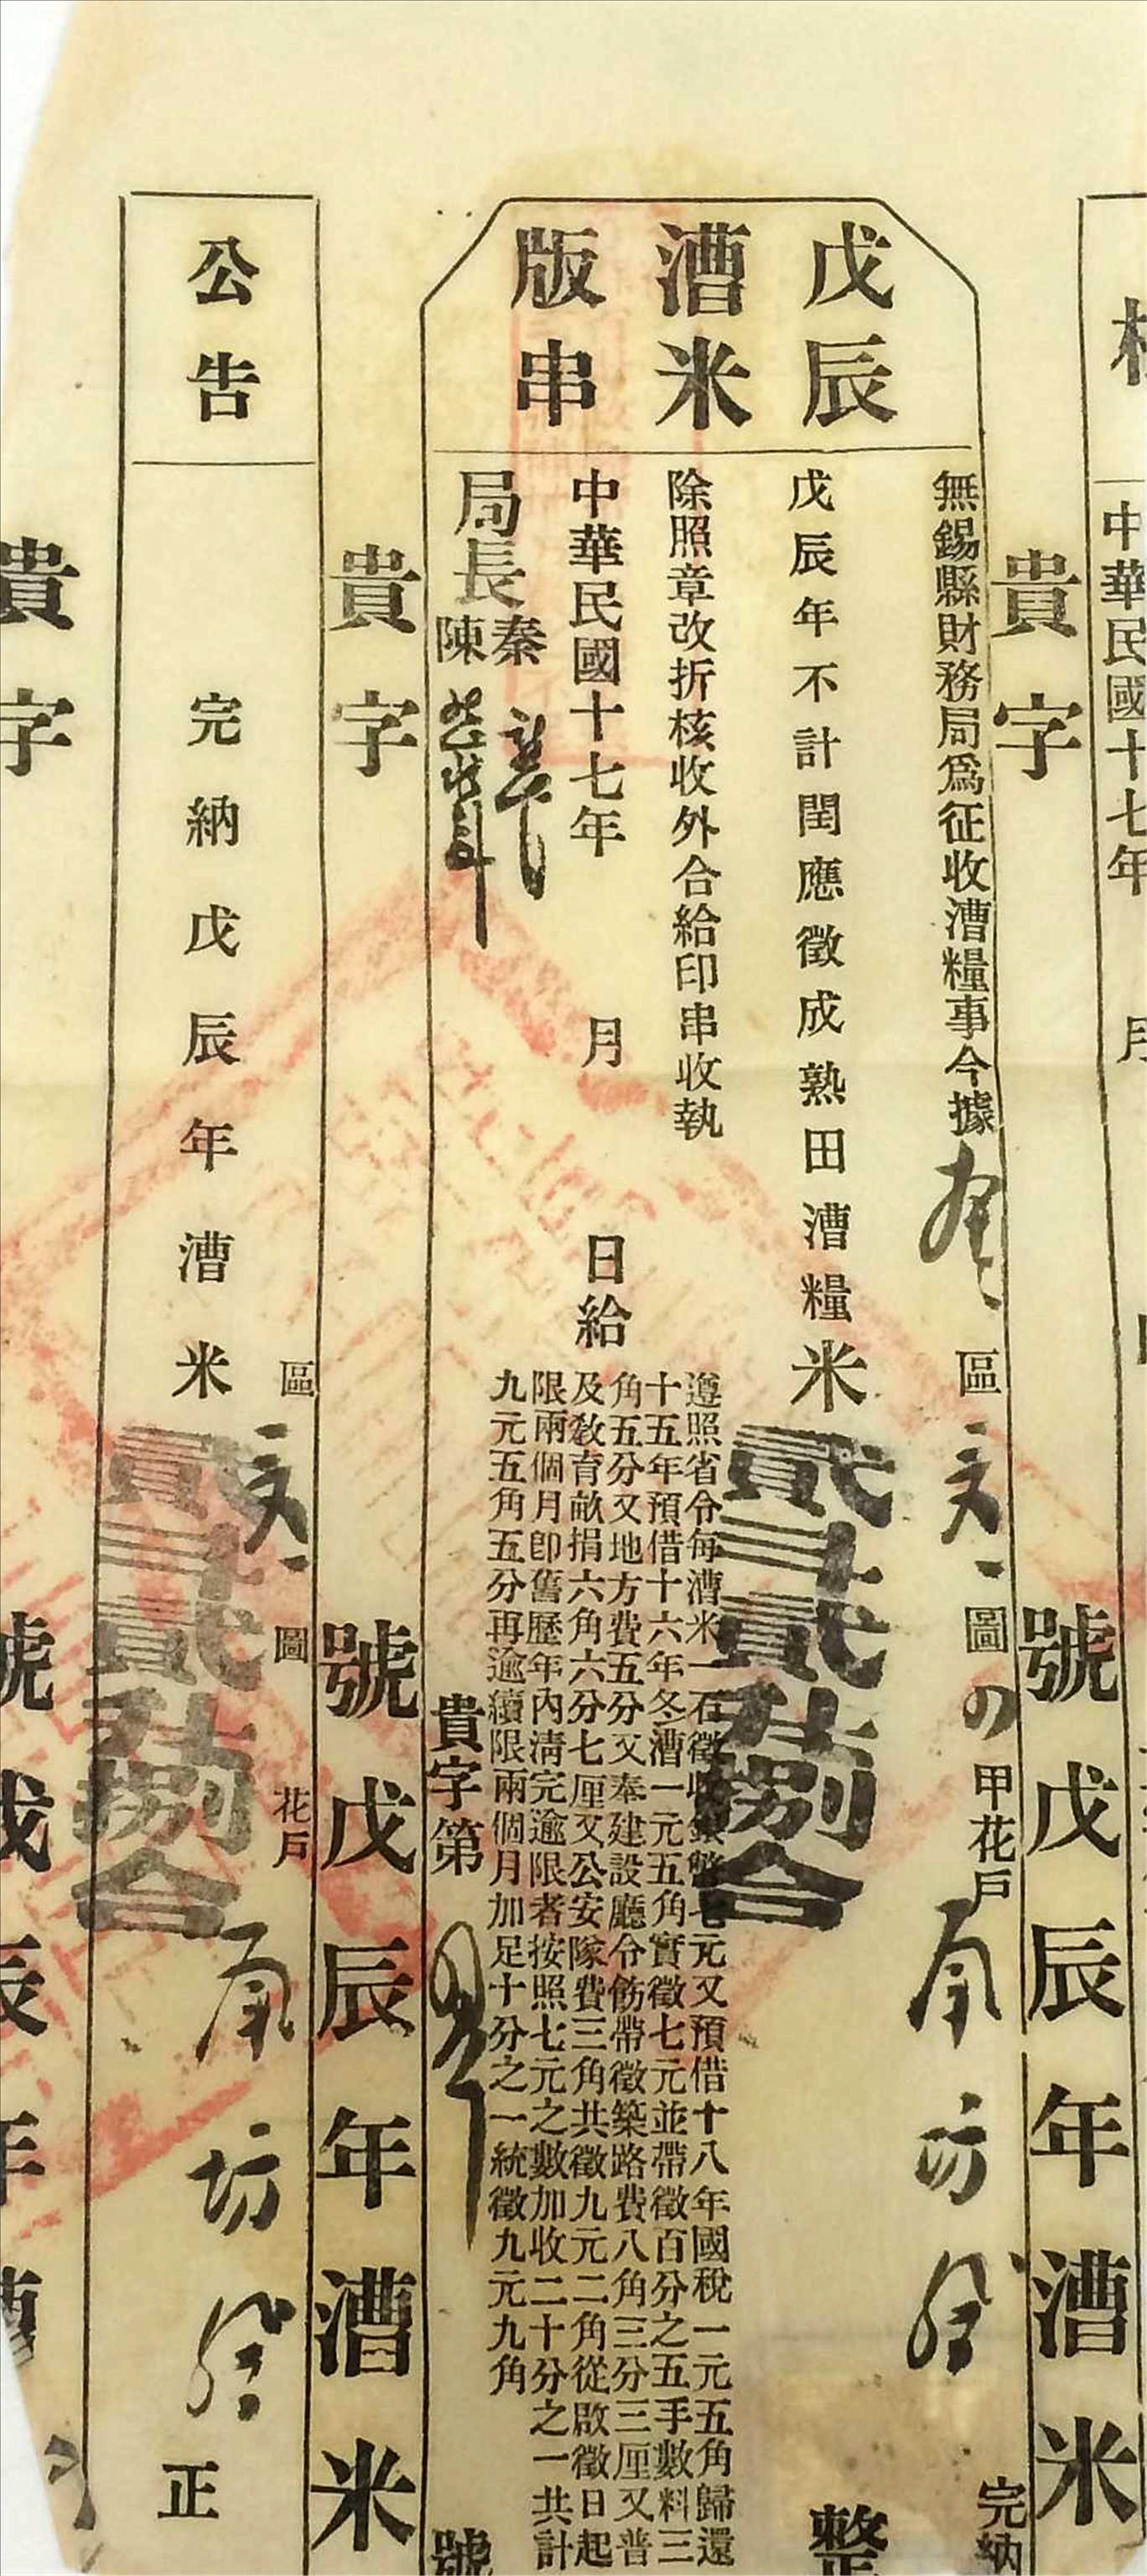 中華民國十七年 月
貴字 號戊辰年漕米
戊辰
漕米
版串
無錫縣財務局爲征收漕糧事今據 區 圖 甲花戶 完納
戊辰年不計閏應徵成熟田漕糧米貳斗貳升捌合 整
除照章改折核收外合給印串收執
遵照省令每漕米一石徵收銀幣七元又預借十八年國稅一元五角歸還
十五年預借十六年冬漕一元五角實徵七元並帶徵百分之五手數料三
角五分又地方費五分又奉建設廳令飭帶徵築路費八角三分三厘又普
及教育畝捐六角六分七厘又公安隊費三角共徵九元二角從啟徵日起
限兩個月卽舊歷年內清完逾限者按照七元之數加收二十分之一共計
九元五角五分再逾續限兩個月加足十分之一統徵九元九角
中華民國十七年 月 日給
局長 秦 陳
貴字第 號
貴字 號戊辰年漕米
公告
區 圖 花戶 南坊
完納戊辰年漕米貳斗貳升捌合 正
貴字 號戊辰年漕